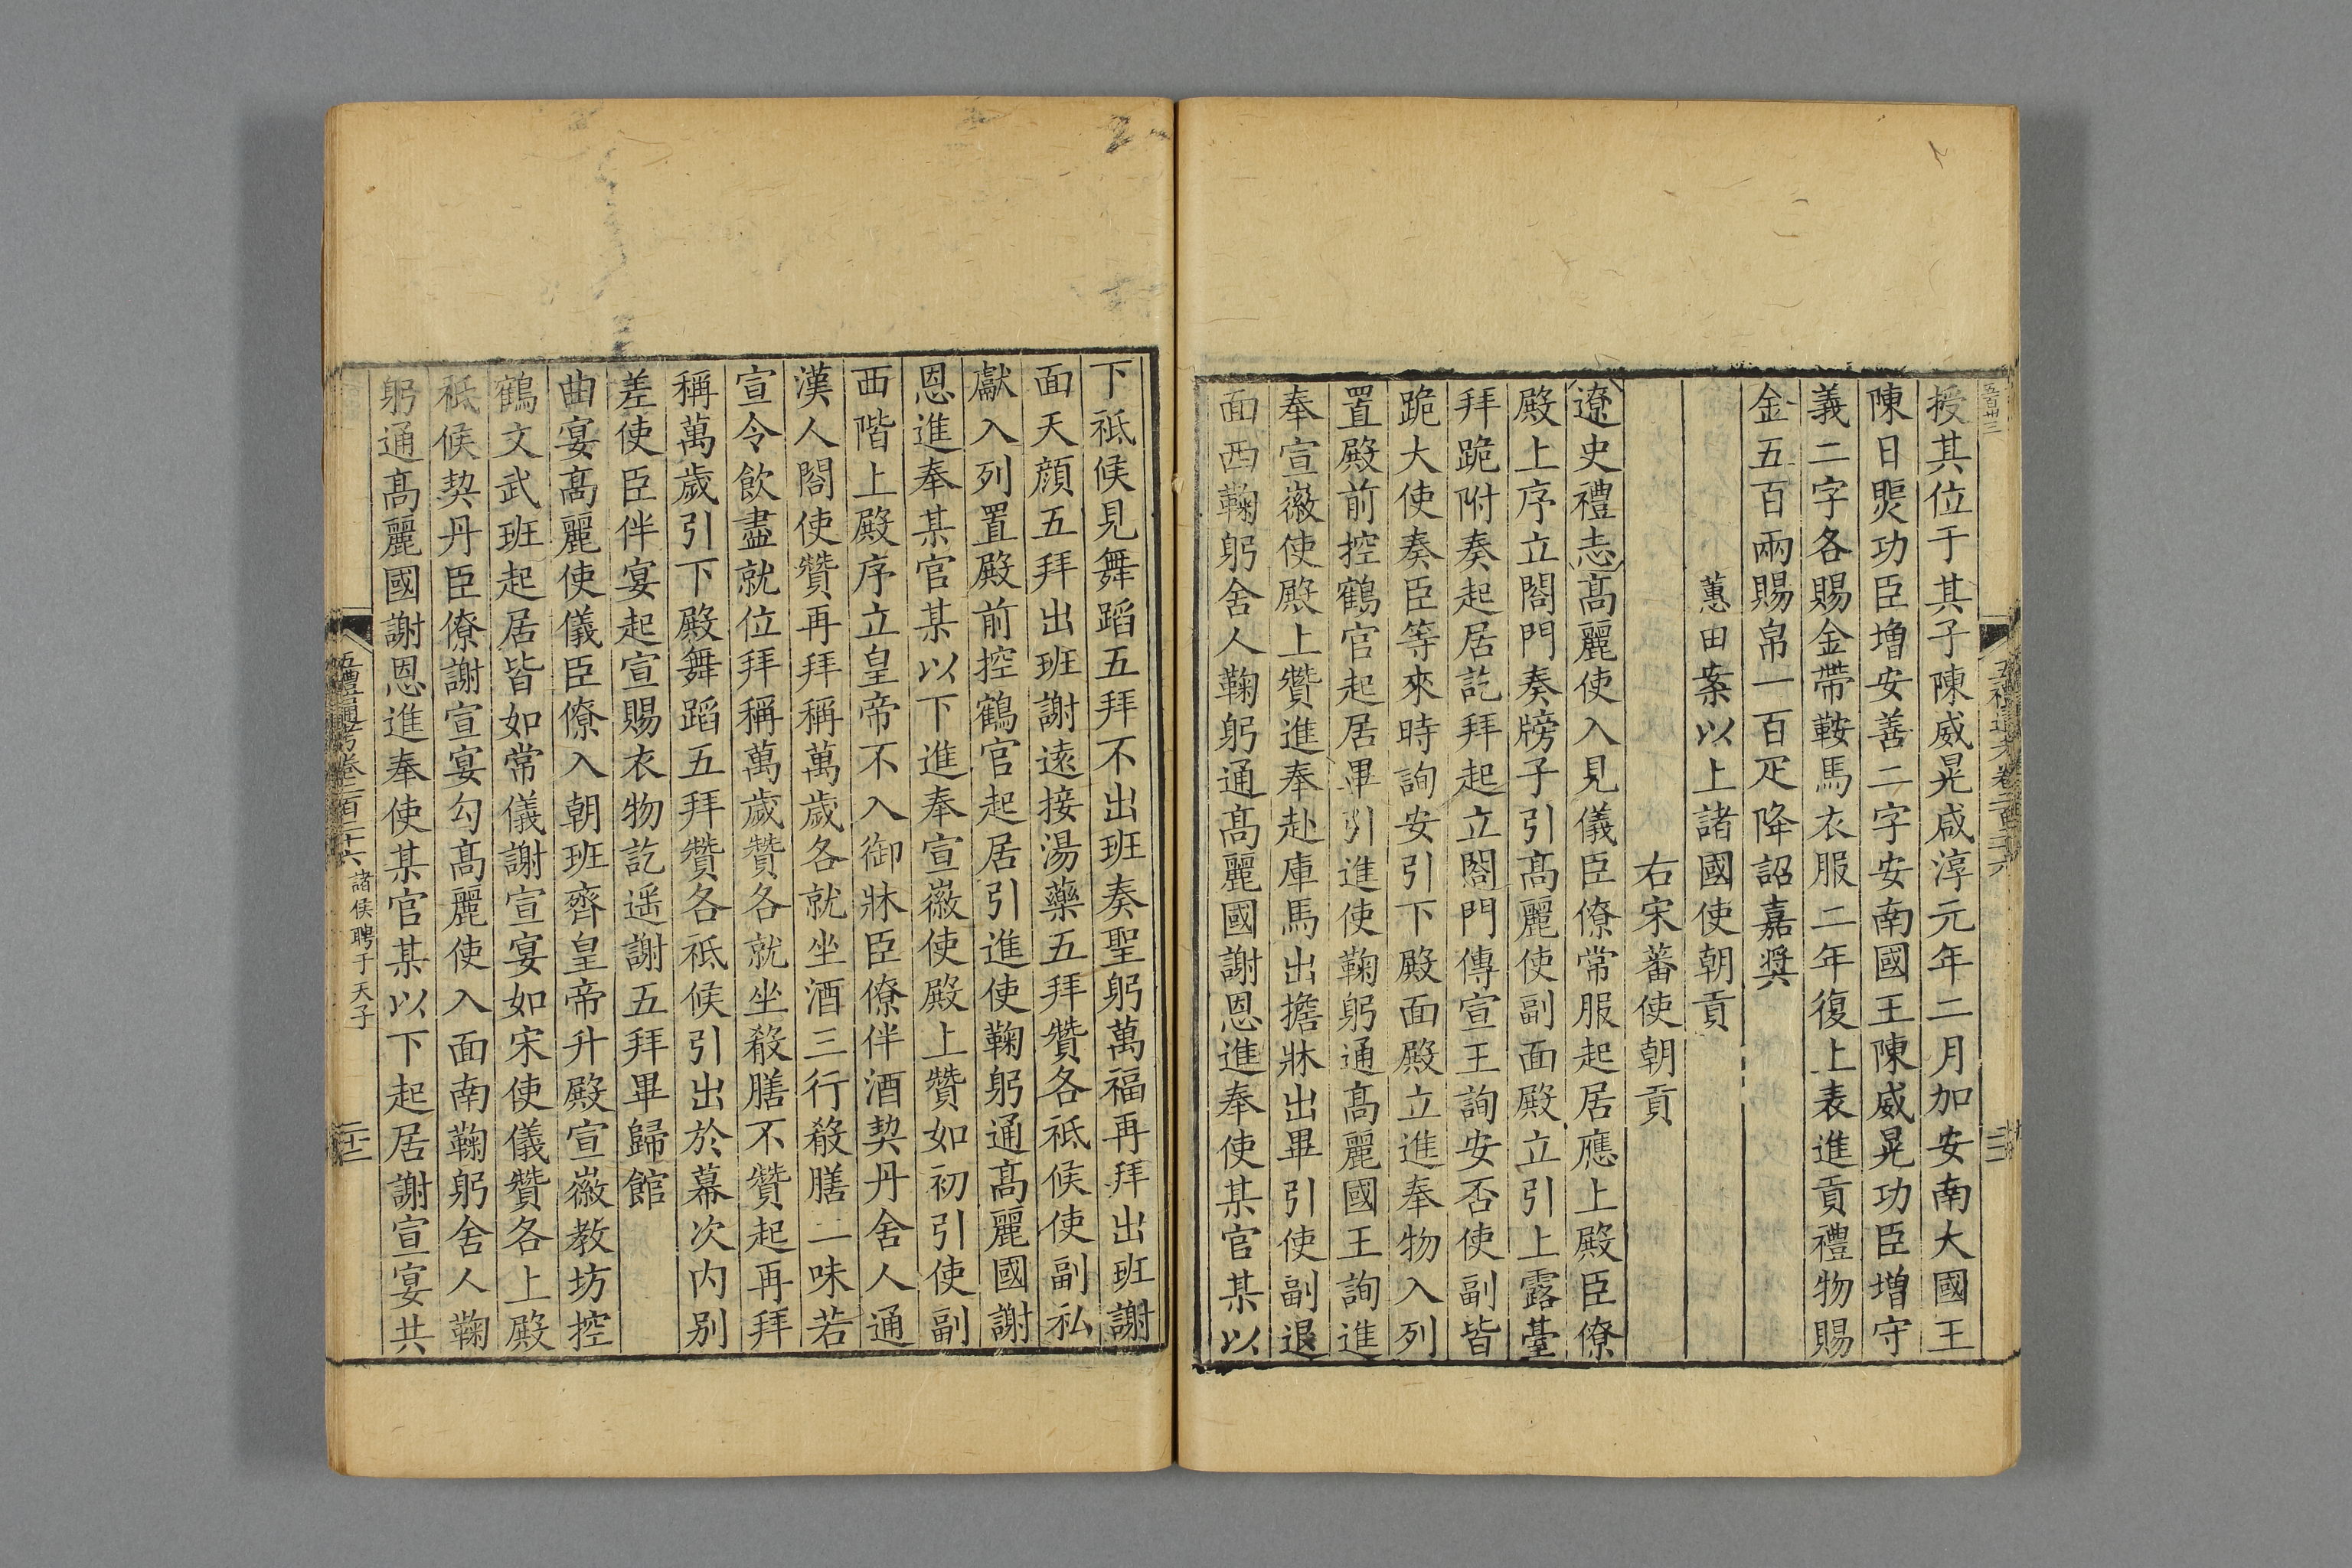 授其位于其子陳威晃咸淳元年二月加安南大國王
陳日煚功臣增安善二字安南國王陳威晃功臣增守
義二字各賜金帶鞍馬衣服二年復上表進貢禮物賜
金五百兩賜帛一百疋降詔嘉奬
蕙田案以上諸國使朝貢
右宋蕃使朝貢
遼史禮志髙麗使入見儀臣僚常服起居應上殿臣僚
殿上序立閤門奏牓子引髙麗使副面殿立引上露臺
拜跪附奏起居訖拜起立閤門傳宣王詢安否使副皆
跪大使奏臣等來時詢安引下殿面殿立進奉物入列
置殿前控鶴官起居畢引進使鞠躬通髙麗國王詢進
奉宣徽使殿上贊進奉赴庫馬出擔牀出畢引使副退
面西鞠躬舍人鞠躬通髙麗國謝恩進奉使某官某以
下祗候見舞蹈五拜不出班奏聖躬萬福再拜出班謝
面天顔五拜出班謝逺接湯藥五拜贊各祗候使副私
獻入列置殿前控鶴官起居引進使鞠躬通髙麗國謝
恩進奉某官某以下進奉宣徽使殿上贊如初引使副
西階上殿序立皇帝不入御牀臣僚伴酒契丹舍人通
漢人閤使贊再拜稱萬歲各就坐酒三行殽膳二味若
宣令飲盡就位拜稱萬歲贊各就坐殽膳不贊起再拜
稱萬歲引下殿舞蹈五拜贊各祗候引出於幕次内别
差使臣伴宴起宣賜衣物訖遥謝五拜畢歸館
曲宴髙麗使儀臣僚入朝班齊皇帝升殿宣徽教坊控
鶴文武班起居皆如常儀謝宣宴如宋使儀贊各上殿
祗候契丹臣僚謝宣宴勾髙麗使入面南鞠躬舍人鞠
躬通髙麗國謝恩進奉使某官某以下起居謝宣宴共
五禮通考卷二百二十六 諸侯聘于天子